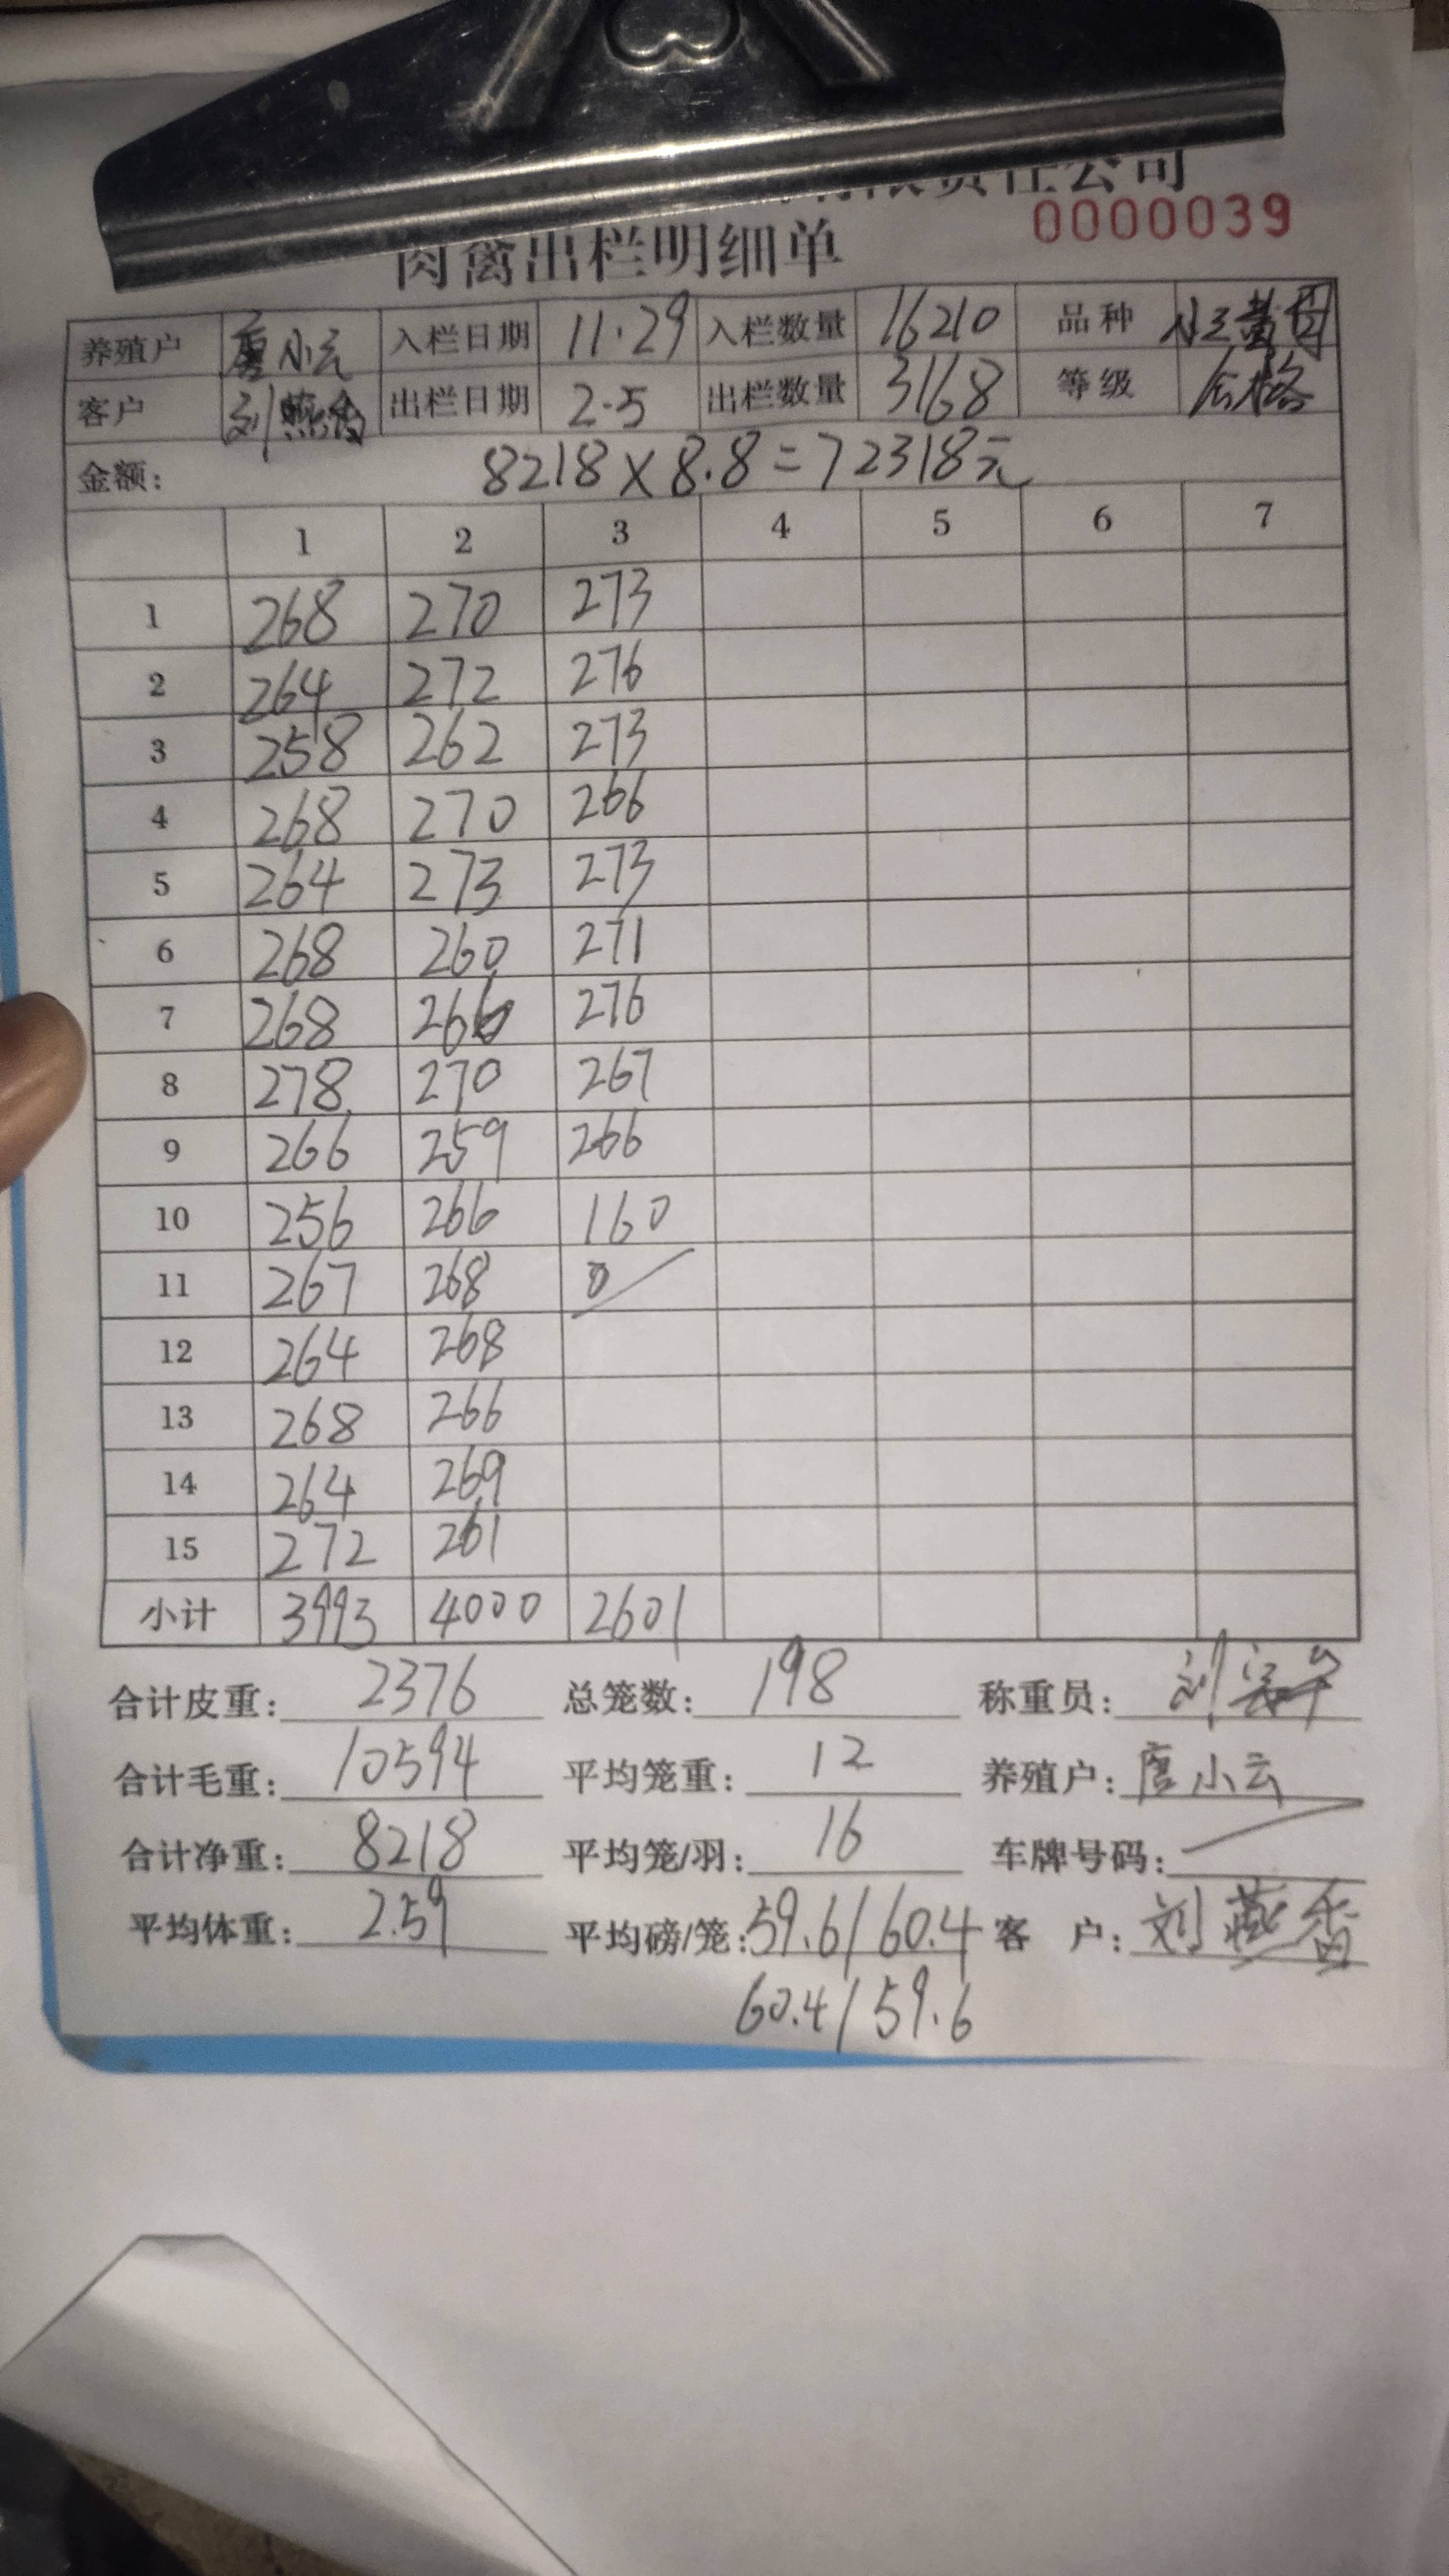 有限责任公司
0000039
肉禽出栏明细单
养殖户 唐小云 入栏日期 11.29 入栏数量 16210 品种
客户 刘燕香 出栏日期 2.5 出栏数量 3168 等级 合格
金额: 8218×8.8=72318元
1 2 3 4 5 6 7
1 268 270 273
2 264 272 276
3 258 262 273
4 268 270 266
5 264 273 273
6 268 260 271
7 268 266 276
8 278 270 267
9 266 259 266
10 256 266 160
11 267 268 0
12 264 268
13 268 266
14 264 269
15 272 261
小计 3993 4000 2601
合计皮重: 2376 总笼数: 198 称重员: 刘
合计毛重: 10594 平均笼重: 12 养殖户: 唐小云
合计净重: 8218 平均笼/羽: 16 车牌号码:
平均体重: 2.59 平均磅/笼: 59.6/60.4 客户: 刘燕香
60.4/59.6